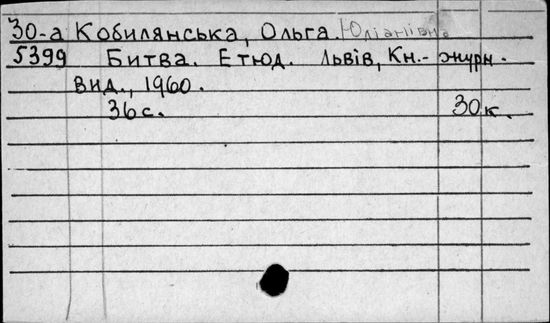 30-а Кобилянська, Ольга Юліанівна
5399 Битва. Етюд. Львів, Кн.-журн.
вид., 1960.
36 с. 30 к.